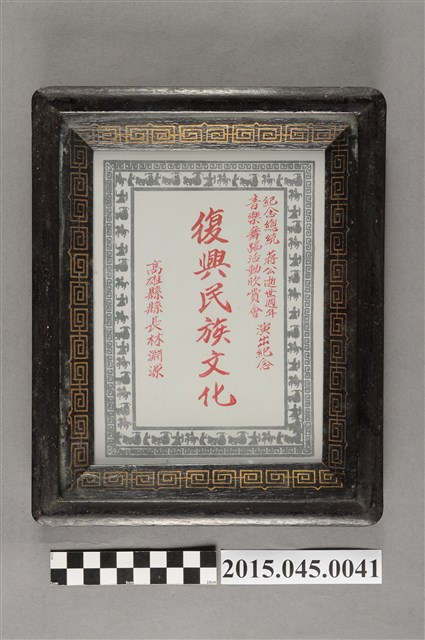 紀念總統 蔣公逝世週年
音樂舞蹈活動欣賞會 演出紀念
復興民族文化
高雄縣縣長林淵源
2015.045.0041